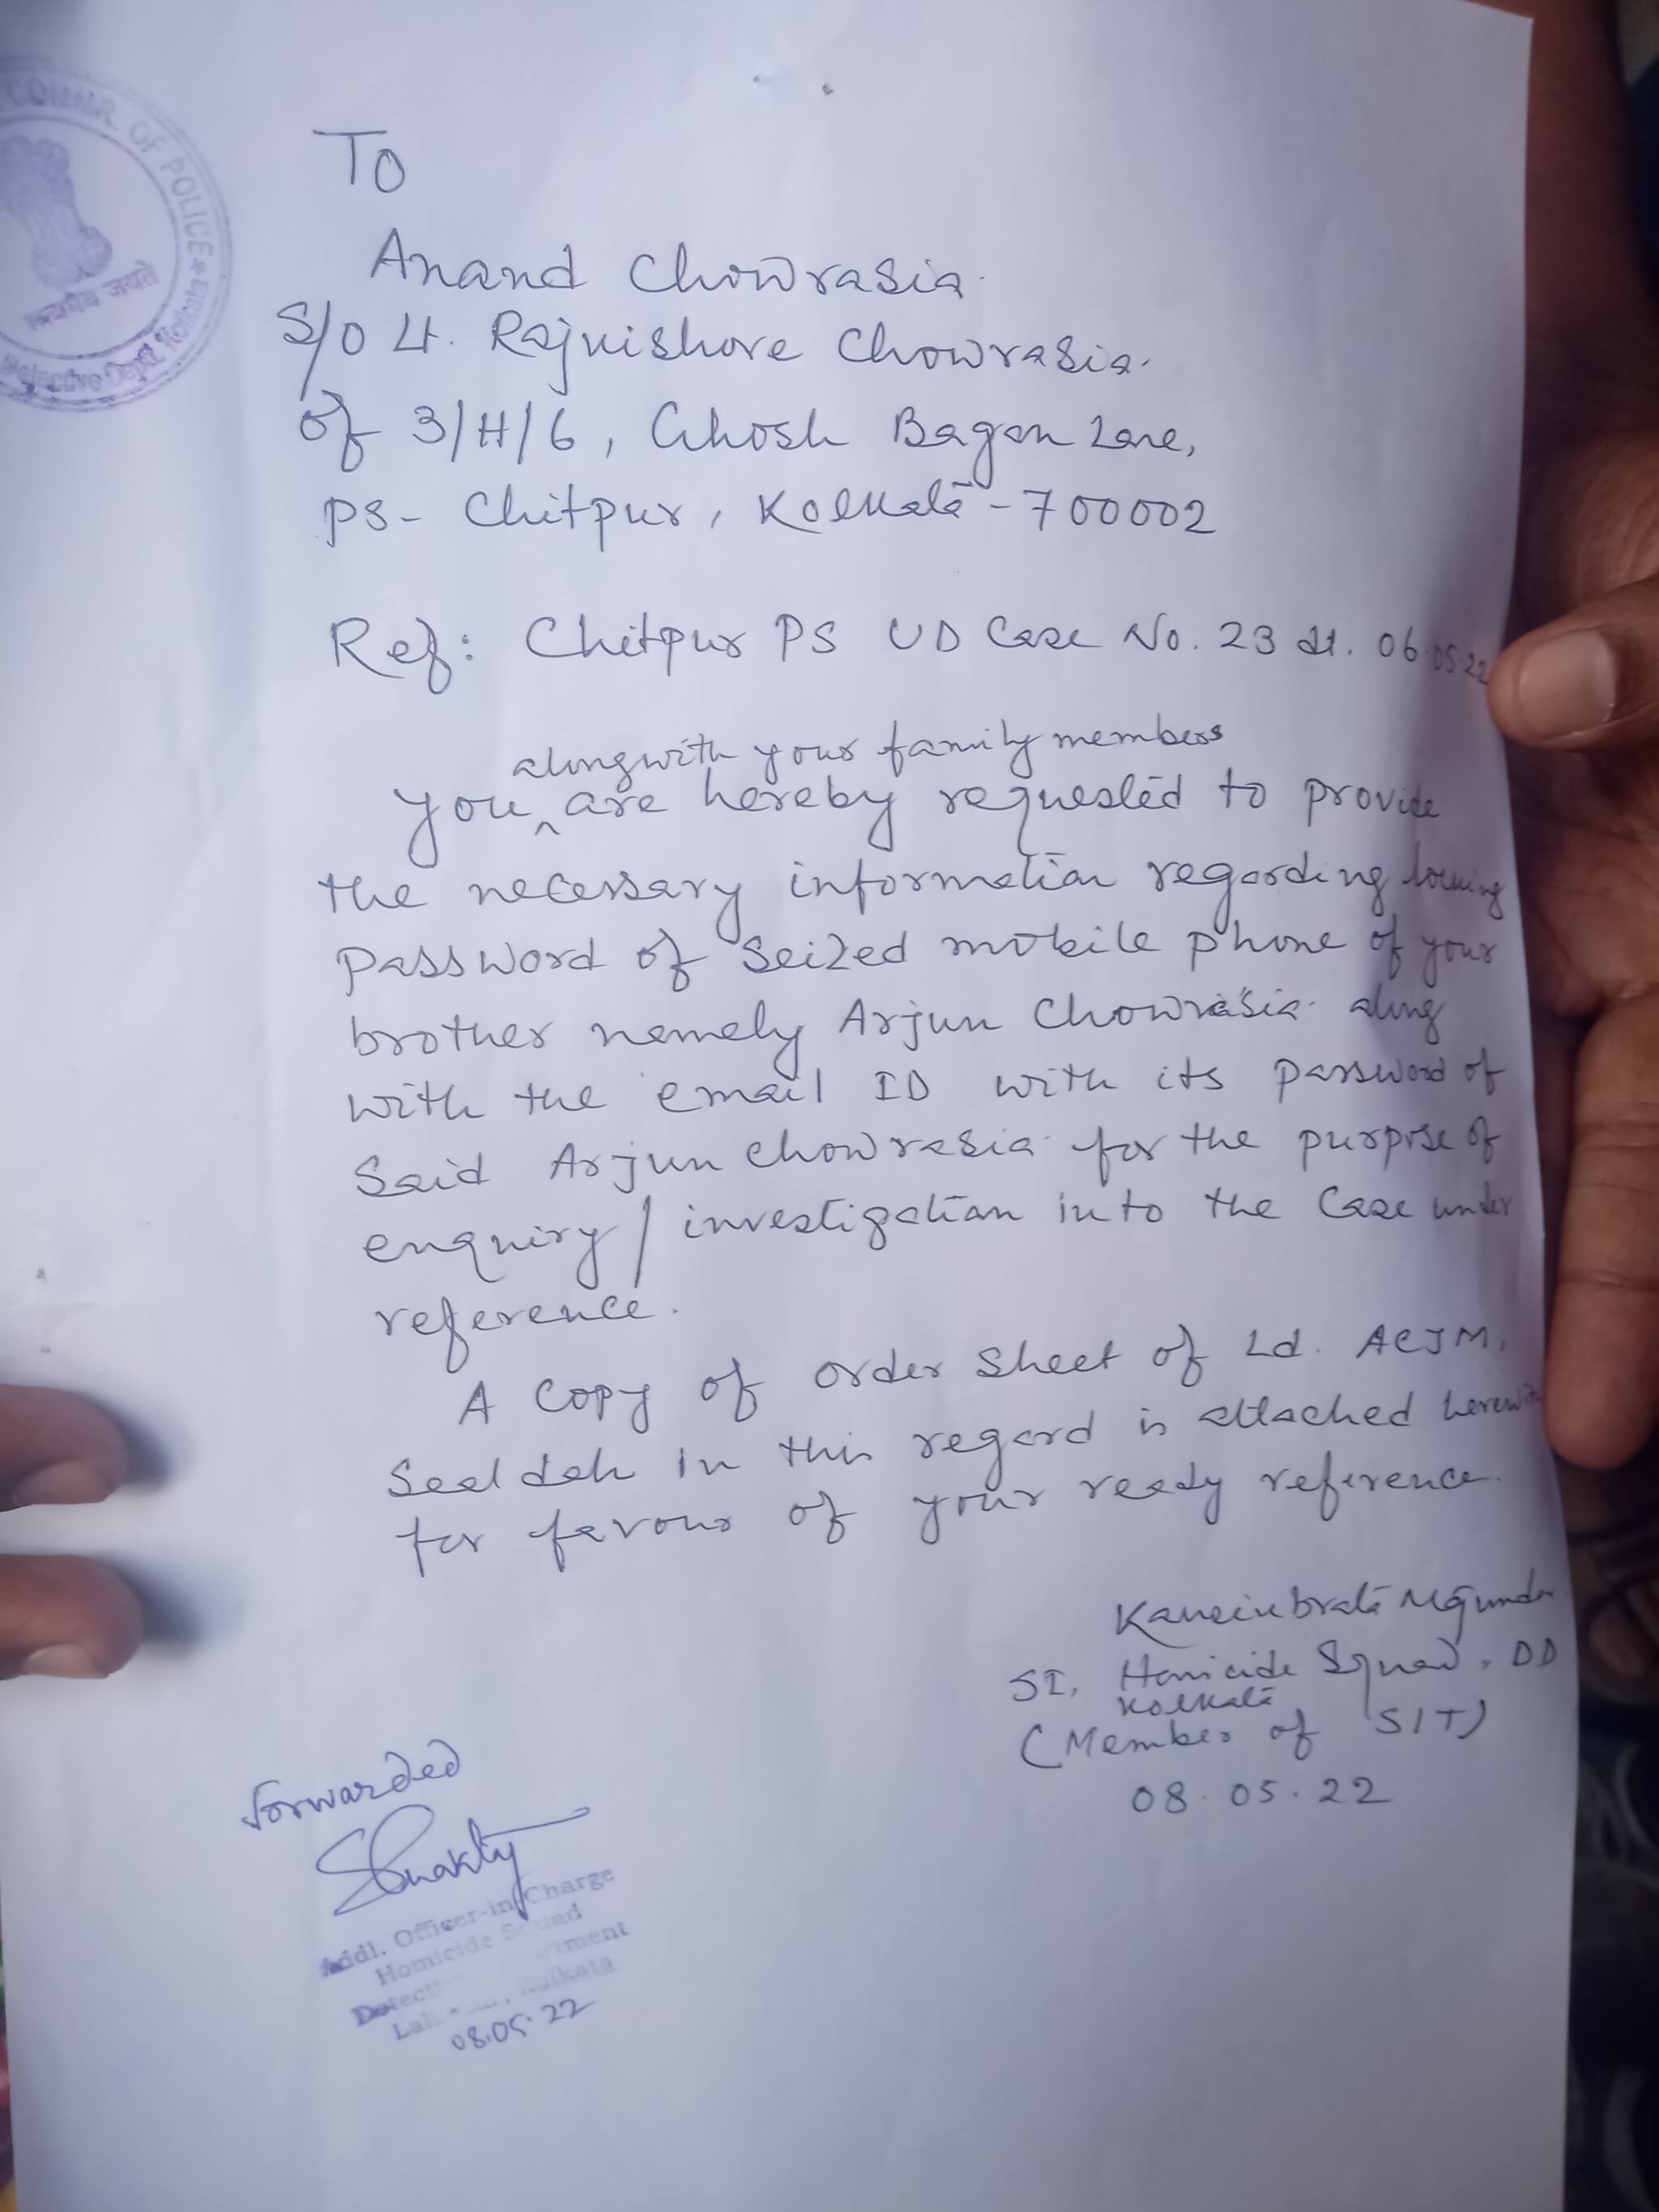 COMMR. OF POLICE *
सत्यमेव जयते
Detective Deptt. Kolkata *
To
Anand Chowrasia.
S/O Lt. Rajkishore Chowrasia.
of 3/H/6, Ghosh Bagan Lane,
PS- Chitpur, Kolkata - 700002
Ref: Chitpur PS UD Case No. 23 dt. 06.05.22
alongwith your family members
You ^ are hereby requested to provide
the necessary information regarding
password of seized mobile phone of your
brother namely Arjun Chowrasia along
with the email ID with its password of
said Arjun Chowrasia for the purpose of
enquiry / investigation into the case under
reference.
A copy of order sheet of Ld. ACJM,
Sealdah in this regard is attached herewith
for favour of your ready reference.
SI, Homicide Squad, DD
Kolkata
(Member of SIT)
08.05.22
Forwarded
Addl. Officer-in-Charge
Homicide Squad
Kolkata
08.05.22